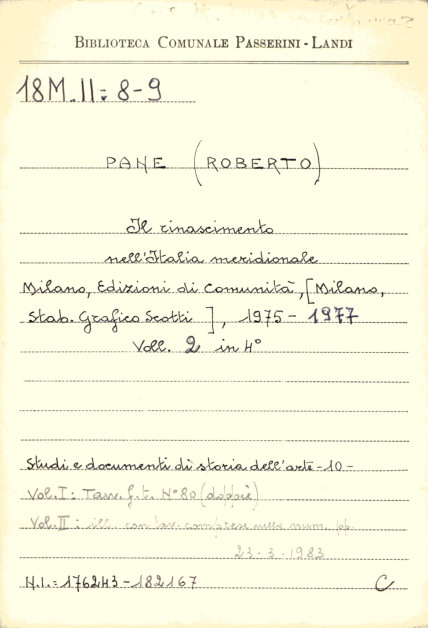 BIBLIOTECA COMUNALE PASSERINI - LANDI
18M.II: 8-9
PANE (ROBERTO)
Il rinascimento
nell'Italia meridionale
Milano, Edizioni di Comunità, [Milano,
Stab. Grafico Scotti], 1975 - 1977
Voll. 2 in 4°
Studi e documenti di storia dell'arte - 10 -
Vol. I: Tavv. f. t. N° 80 (doppie)
Vol. II: ill. con tav. comprese nella num. pp.
23 - 3 - 1983
N.I.= 176243 - 182167
C